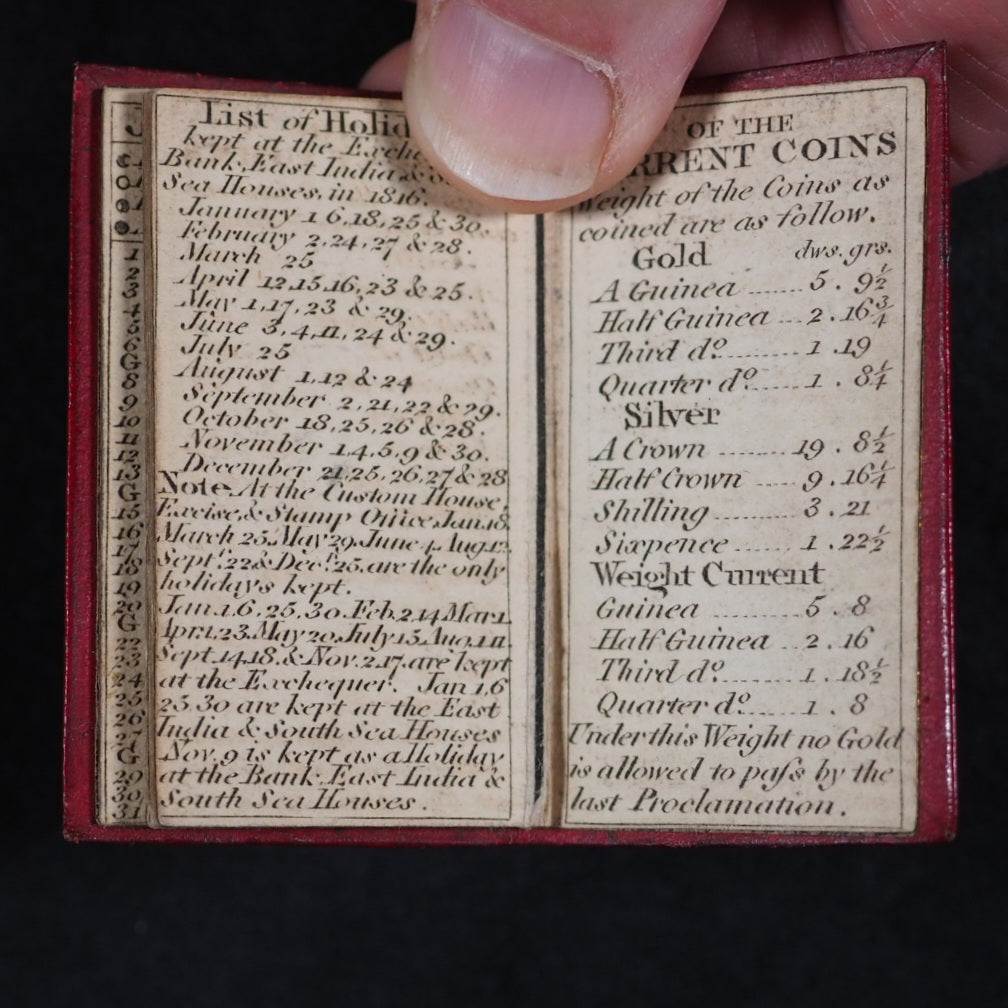 List of Holid
kept at the Exche
Bank, East India &
Sea Houses, in 1816.
January 1 6, 18, 25 & 30.
February 2, 24, 27 & 28.
March 25
April 12, 15, 16, 23 & 25.
May 1, 17, 23 & 29.
June 3, 4, 11, 24 & 29.
July 25
August 1, 12 & 24
September 2, 21, 22 & 29.
October 18, 25, 26 & 28.
November 1, 4, 5, 9 & 30.
December 21, 25, 26, 27 & 28
Note. At the Custom House,
Excise, & Stamp Office, Jan. 18,
March 25, May 29, June 4, Aug. 12,
Sept.r 22 & Dec.r 25, are the only
holidays kept.
Jan. 1.6, 25, 30. Feb. 2.14 Mar. 1.
Apr. 1.23. May 20. July 15 Aug. 1.11.
Sept. 14.18. & Nov. 2.17. are kept
at the Exchequer. Jan 1,6
25.30 are kept at the East
India & South Sea Houses
Nov. 9 is kept as a Holiday
at the Bank, East India &
South Sea Houses.
1
2
3
4
5
6
G
8
9
10
11
12
13
G
15
16
17
18
19
20
G
22
23
24
25
26
27
G
29
30
31
OF THE
RRENT COINS
Weight of the Coins as
coined are as follow.
Gold dws. grs.
A Guinea ...... 5 . 9½
Half Guinea ... 2 . 16¾
Third do. ......... 1 . 19
Quarter do. ...... 1 . 8¼
Silver
A Crown ......... 19 . 8½
Half Crown ..... 9 . 16¼
Shilling ......... 3 . 21
Sixpence ...... 1 . 22½
Weight Current
Guinea ......... 5 . 8
Half Guinea .. 2 . 16
Third do. ......... 1 . 18½
Quarter do. ...... 1 . 8
Under this Weight no Gold
is allowed to paſs by the
last Proclamation.